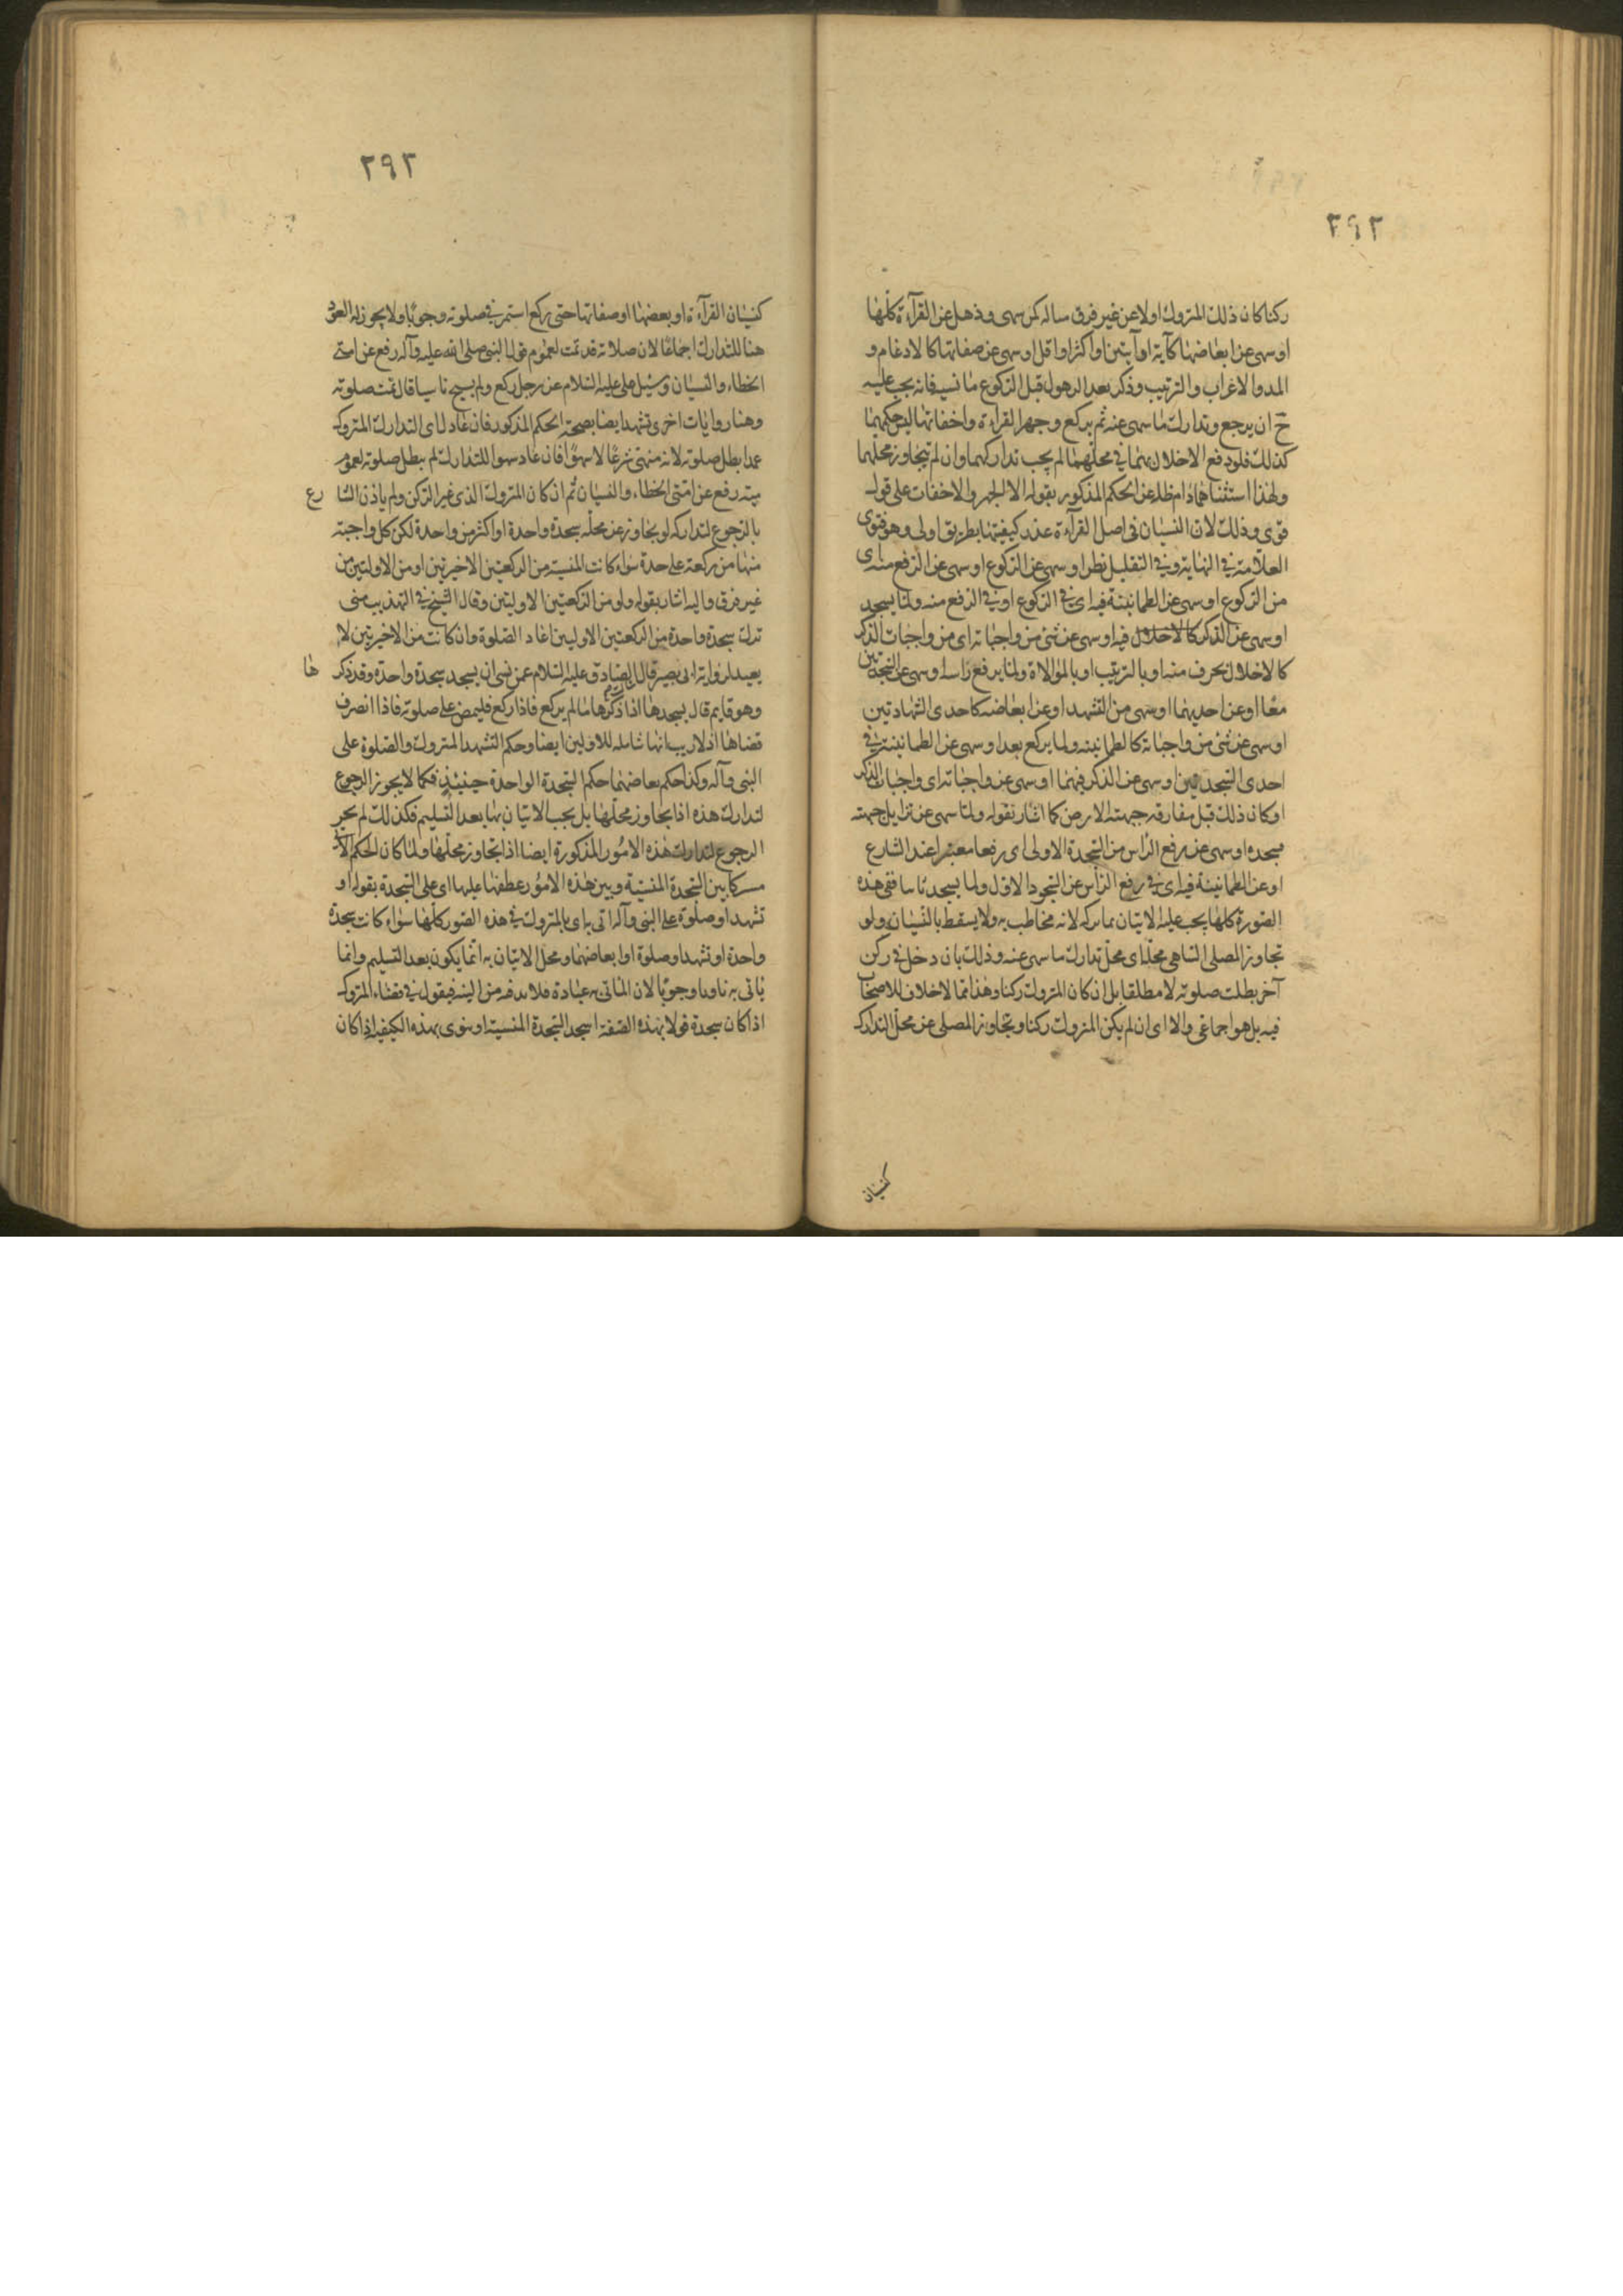 ٢٩٢
ركنا كان ذلك المتروك اولا عن غير فرق ساله كمن سهى وذهل عن القرآءة كلها
او سهى عن ابعاضها كآية او آيتين او اكثر او اقل او سهى عن صفاتها كالادغام و
المد والاعراب والترتيب وذكر بعد الذهول قبل الركوع ما نسيه فانه يجب عليه
ح ان يرجع وتدارك ما سهى عنه ثم يركع وجهر القراءة واخفاتها ليس حكمهما
كذلك فلو دفع الاخلال بهما في محلهما لم يجب تداركهما وان لم يتجاوز محلهما
ولهذا استثناهما دام ظله عن الحكم المذكور بقوله الا الجهر والاخفات على قول
قوى وذلك لان النسيان فى اصل القرآءة عذر كيفيتها بطريق اولى وهو فتوى
العلامة في النهاية وفي التقليل نظر او سهى عن الركوع او سهى عن الرفع منه اى
من الركوع او سهى عن الطمانينة فيه اى في الركوع او في الرفع منه ولما يسجد
او سهى عن الذكر كالاخلال فيه او سهى عن شئ من واجباته اى من واجبات الذكر
كالاخلال بحرف منه او بالترتيب او بالموالاة ولما يرفع راسه او سهى عن السجدتين
معًا او عن احديهما او سهى من التشهد او عن ابعاضه كاحدى الشهادتين
او سهى عن شئ من واجباته كالطمانينه ولما يركع بعد او سهى عن الطمانينة في
احدى السجدتين او سهى عن الذكر فيهما او سهى عن واجباته اى واجبات الذكر
او كان ذلك قبل مفارقه جبهته الارض كما اشار بقوله ولما سهى عن تزايل جبهته
مسجده او سهى عن رفع الراس من السجدة الاولى اى رفعا معتبرا عند الشارع
او عن الطمانينة فيه اى في رفع الراس عن السجود الاول ولما يسجد ثانيا ففى هذه
الصورة كلها يجب عليه الاتيان بما تركه لانه مخاطب به ولا يسقط بالنسيان ولو
تجاوز المصلى الساهى محله اى محل تدارك ما سهى عنه وذلك بان دخل في ركن
آخر بطلت صلوته لا مطلقا بل ان كان المتروك ركنا وهذا مما لا خلاف للاصحاب
فيه بل هو اجماعى والا اى ان لم يكن المتروك ركنا وتجاوز المصلى عن محل التدارك
كنسيان
٢٩٢
كنسيان القرآءة او بعضها او صفاتها حتى ركع استمر في صلوته وجوبًا ولا يجوز له العود
هنا للتدارك اجماعًا لان صلاته قد تمت لعموم قول النبى صلى الله عليه وآله رفع عن امتى
الخطاء والنسيان وسئل على عليه السلام عن رجل ركع ولم يسبح ناسيا قال تمت صلوته
وهنا روايات اخرى تشهد ايضا بصحة الحكم المذكور فان عاد لاى التدارك المتروك
عمدا بطل صلوته لانه منهى شرعًا لا سهوًا فان عاد سهوا للتدارك لم يبطل صلوته لعموم
رفع عن امتى الخطاء والنسيان ثم ان كان المتروك الذى غير الركن ولم ياذن الشا رع
بالرجوع لتداركه لو تجاوز عن محله سجدة واحدة او اكثر من واحدة لكن كل واجبة
منها من ركعة على حدة سواء كانت المنسية من الركعتين الاخيرتين او من الاولتين من
غير فرق واليه اشار بقوله ولو من الركعتين الاوليتين وقال الشيخ في التهذيب متى
ترك سجدة واحدة من الركعتين الاوليين اعاد الصلوة وان كانت من الاخيرتين لا
يعيد لرواية ابى بصير قال الصادق عليه السلام عمن نسى ان يسجد سجدة واحدة وقد ذكر ها
وهو قايم قال يسجدها اذا ذكرها ما لم يركع فاذا ركع فليمض على صلوته فاذا انصرف
قضاها اذ لا ريب انها شامله للاولين ايضا وحكم التشهد المتروك والصلوة على
النبى وآله وكذا حكم ابعاضهما حكم السجدة الواحدة حينئذ فكما لا يجوز الرجوع
لتدارك هذه اذا تجاوز محلها بل يجب الاتيان بها بعد التسليم فكذلك لم يجز
الرجوع لتدارك هذه الامور المذكورة ايضا اذا تجاوز محلها ولما كان الحكم
بين السجدة المنسية وبين هذه الامور عطفها عليها اى على السجدة بقوله او
تشهد او صلوة على النبى وآله اتى به اى بالمتروك في هذه الصور كلها سواء كانت سجدة
واحدة او تشهد او صلوة او ابعاضهما ومحل الاتيان به انما يكون بعد التسليم وانما
ياتى به ناويا وجوبًا لان الماتى به عبادة فلا بد فيه من النية فيقول في قضاء المتروك
اذا كان سجدة قولا بهذه الصفة اسجد السجدة المنسية او ينوى بهذه الكيفية اذا كان